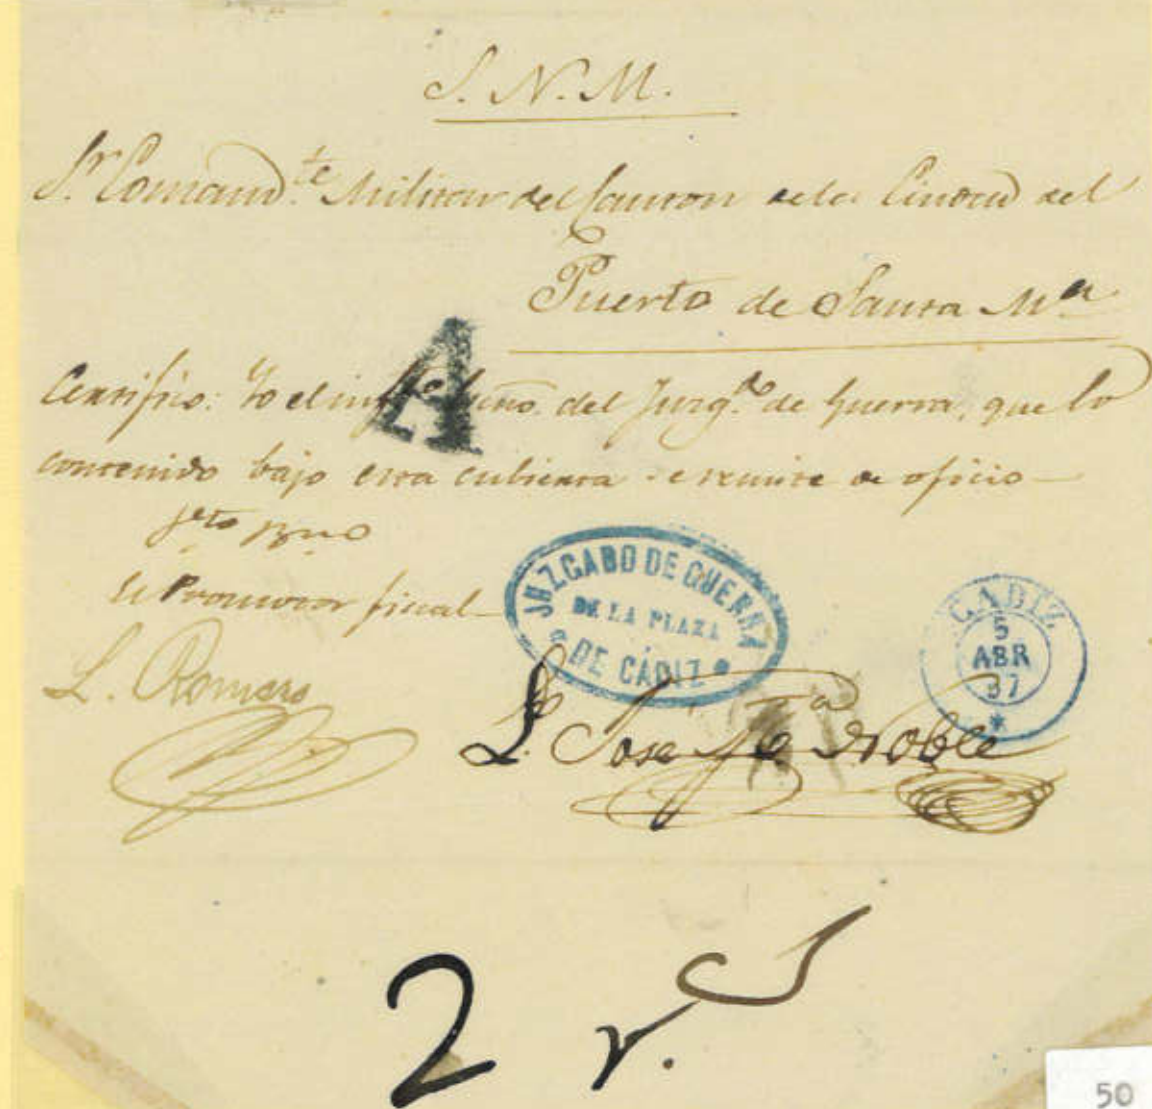 S. N. M.
Sr. Comandte. Militar del Canton de la Ciudad del
Puerto de Santa Ma
A
Certifico: Yo el Esno. del Juzgdo. de Guerra, que lo
contenido bajo esta cubierta se remite de oficio
El Promotor fiscal
JUZGADO DE GUERRA
DE LA PLAZA
DE CÁDIZ
CADIZ
5
ABR
57
L. Romero
L. Jose Noble
2 rs
50